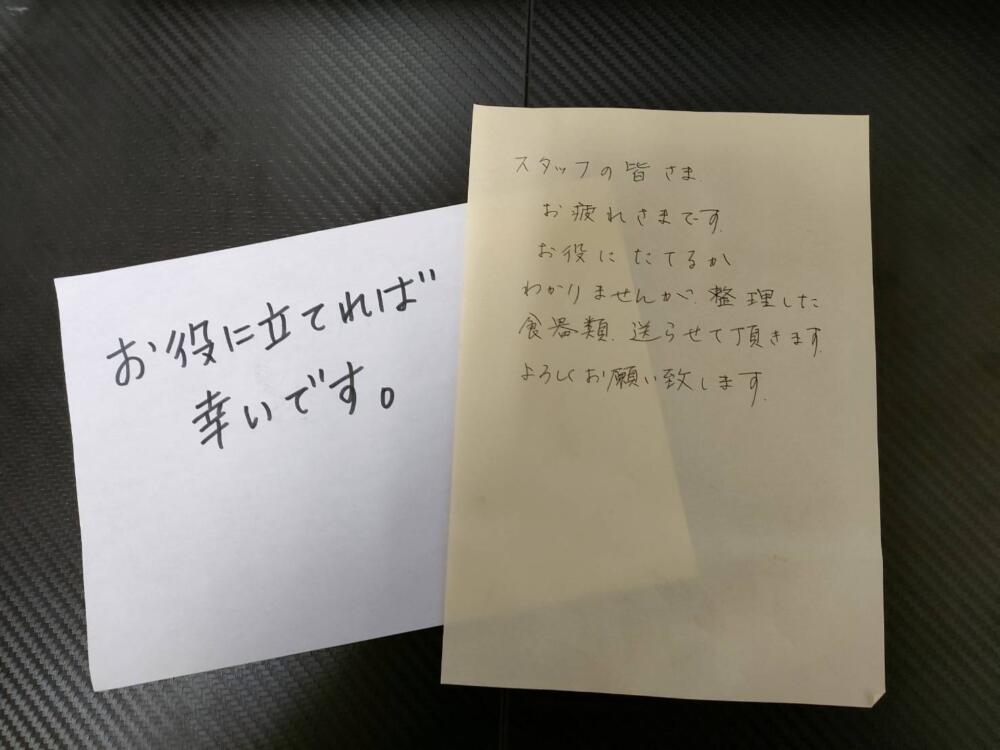 お役に立てれば
幸いです。
スタッフの皆さま
お疲れさまです。
お役にたてるか
わかりませんが、整理した
食器類、送らせて頂きます。
よろしくお願い致します。